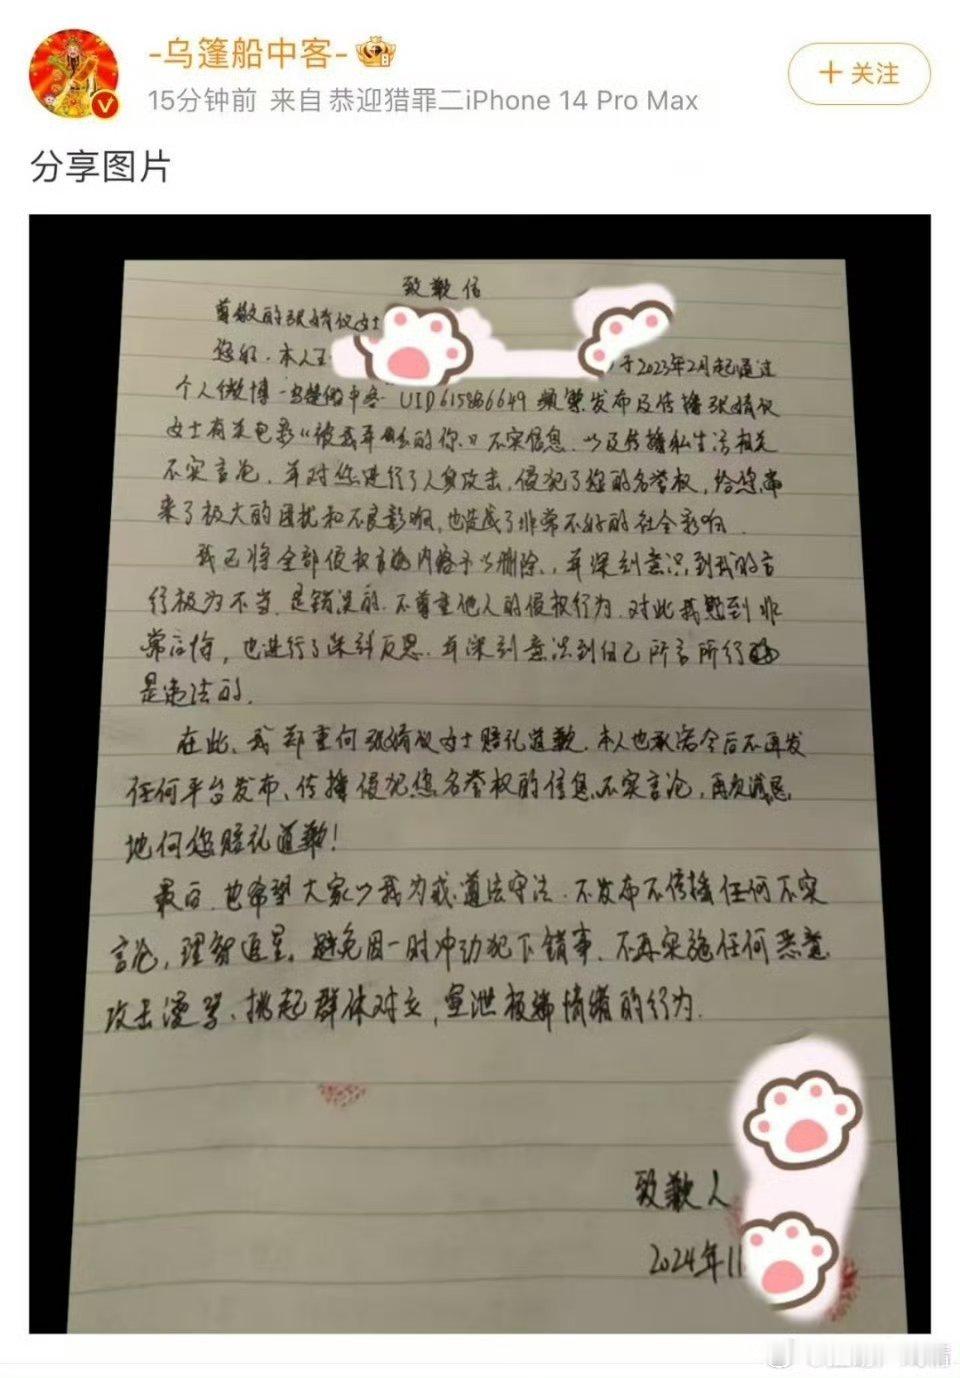 -乌篷船中客-
+关注
15分钟前 来自 恭迎猎罪二iPhone 14 Pro Max
分享图片
致歉信
尊敬的张婧仪女士
您好.本人王
于2023年2月起通过
个人微博-乌篷船中客- UID615886649 频繁发布及传播张婧仪
女士有关电影《被我弄丢的你》不实信息.以及传播私生活相关
不实言论,并对您进行了人身攻击,侵犯了您的名誉权,给您带
来了极大的困扰和不良影响,也造成了非常不好的社会影响.
我已将全部侵权言论内容予以删除,并深刻意识到我的言
行极为不当.是错误的.不尊重他人的侵权行为.对此我感到非
常后悔,也进行了深刻反思.并深刻意识到自己所言所行
是违法的.
在此,我郑重向张婧仪女士赔礼道歉.本人也承诺今后不再发
任何平台发布、传播侵犯您名誉权的信息、不实言论,再次诚恳
地向您赔礼道歉!
最后,也希望大家以我为戒,遵法守法.不发布不传播任何不实
言论,理智追星,避免因一时冲动犯下错事.不再实施任何恶意
攻击谩骂、挑起群体对立,宣泄极端情绪的行为.
致歉人
2024年11